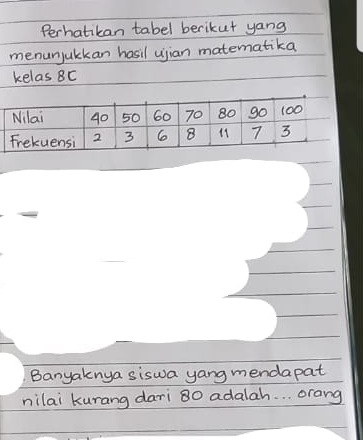 Perhatikan tabel berikut yang
menunjukkan hasil ujian matematika
kelas 8C
Nilai 40 50 60 70 80 90 100
Frekuensi 2 3 6 8 11 7 3
Banyaknya siswa yang mendapat
nilai kurang dari 80 adalah... orang